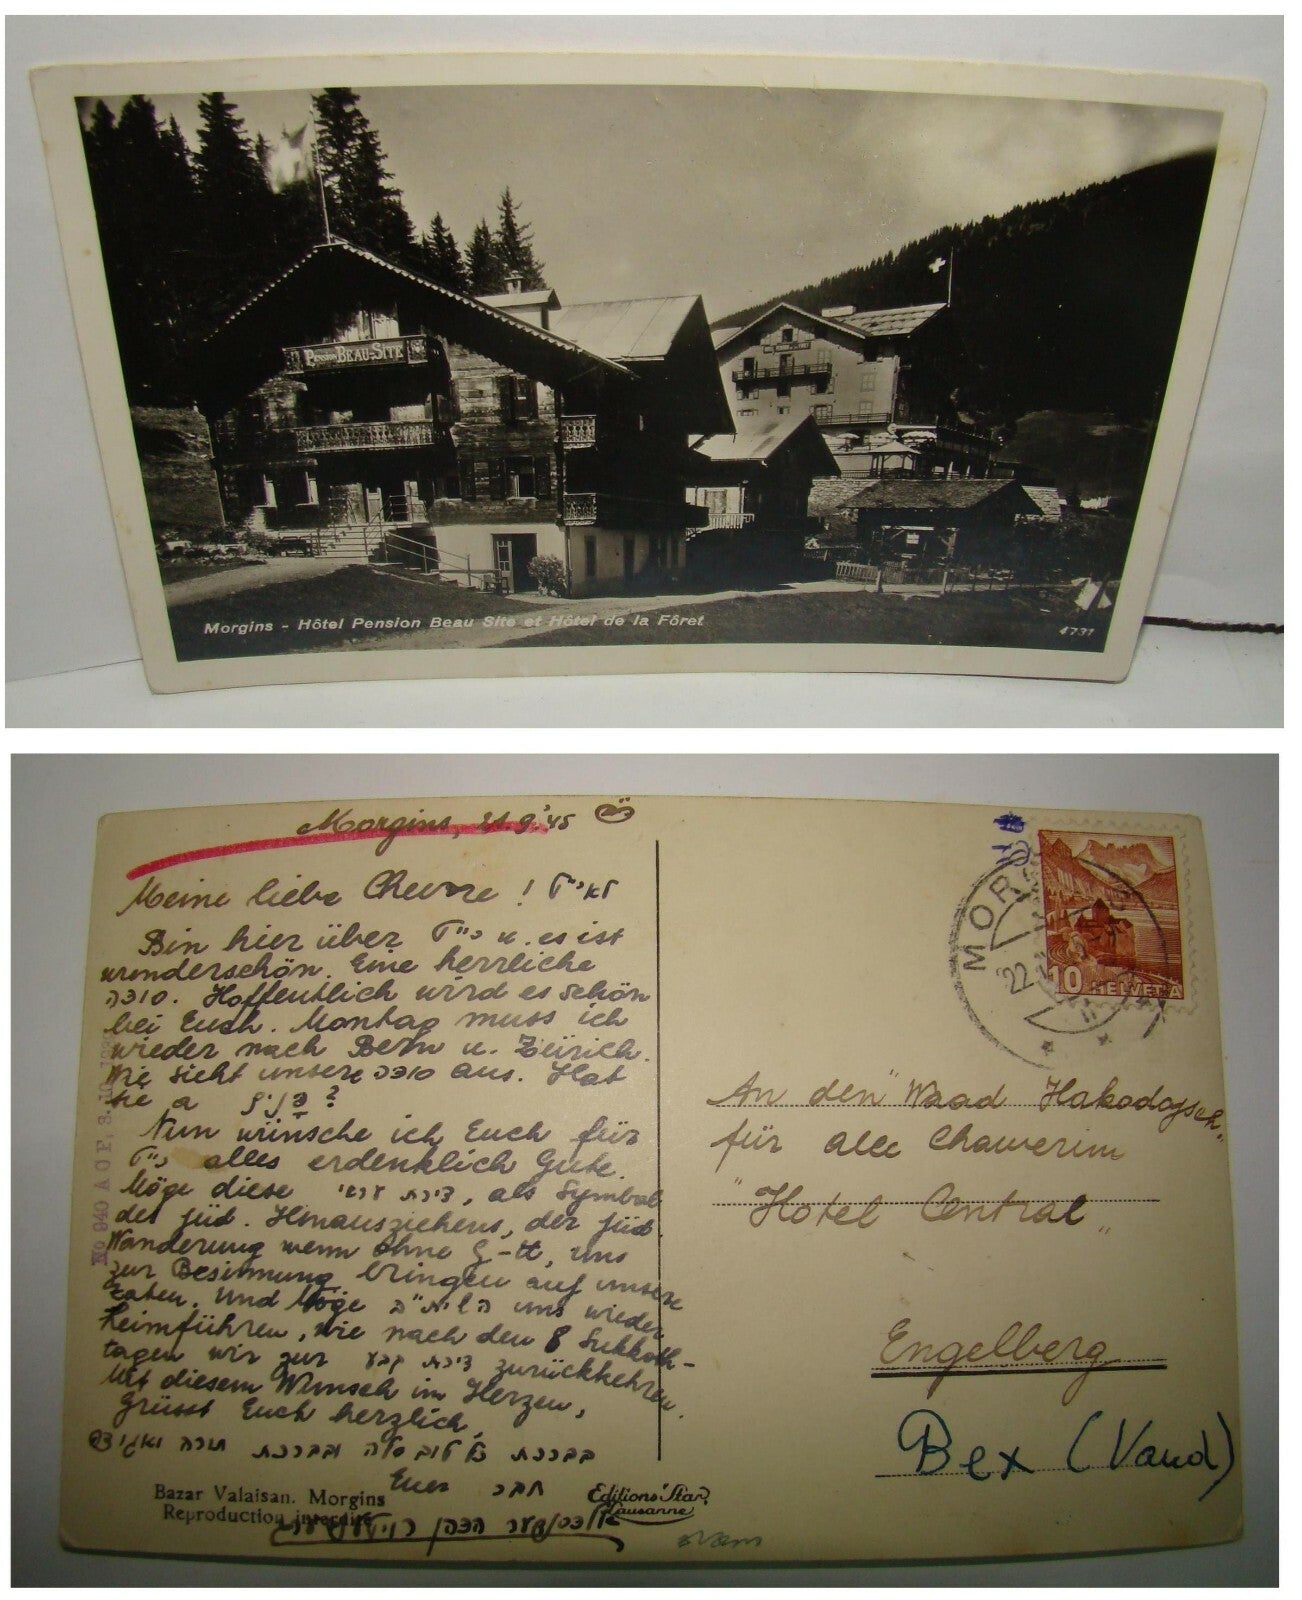 PENSION BEAU-SITE
Morgins - Hôtel Pension Beau Site et Hôtel de la Fôret
4731
Morgins, 21.9.'45
Meine liebe Chewre!
Bin hier über יו"ט u. es ist
wunderschön. Eine herrliche
סוכה. Hoffentlich wird es schön
bei Euch. Montag muss ich
wieder nach Bern u. Zürich.
Wie sieht unsere סוכה aus. Hat
sie a
Nun wünsche ich Euch für
יו"ט alles erdenklich Gute.
Möge diese דירת עראי, als Symbol
des jüd. Hinausziehens, der jüd.
Wanderung wenn ohne G-tt, uns
zur Besinnung bringen auf unsere
Taten. Und Möge השי"ת uns wieder
heimführen, wie nach den 8 Sukkoth-
tagen wir zur דירת קבע zurückkehren.
Mit diesem Wunsch im Herzen,
grüsst Euch herzlich,
בברכת כל טוב סלה ובברכת תורה ואגודה
Euer חבר
Bazar Valaisan. Morgins
Reproduction interdite
Editions "Star"
Lausanne
No 940 A C F, 3. 10.
MOR
22
10 HELVETIA
An den "Waad Hakodosch"
für alle Chawerim
"Hotel Central"
Engelberg
Bex (Vaud)